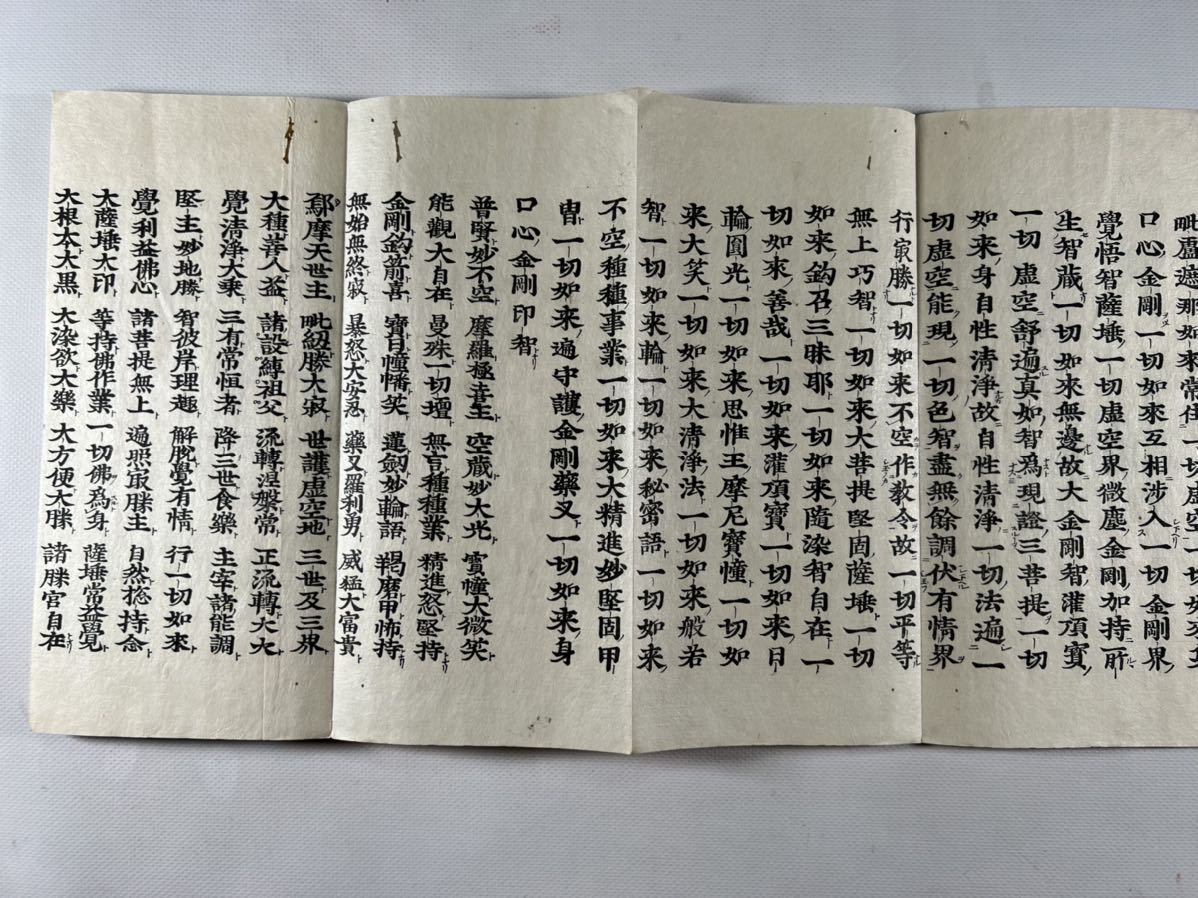 毗盧遮那如來常住一切虛空
口心金剛一切如來互相涉入一切金剛界
覺悟智薩埵一切虛空界微塵金剛加持所
生智蔵一切如來無邊故大金剛智灌頂寶
一切虛空舒遍真如智為現證三菩提一切
如来身自性清淨故自性清淨一切法遍一
切虛空能現一切色智盡無餘調伏有情界
行㝡勝一切如来不空作教令故一切平等
無上巧智一切如来大菩提堅固薩埵一切
如来鈎召三昧耶一切如来隨染智自在一
切如来善哉一切如来灌頂寶一切如来日
輪圓光一切如来思惟王摩尼寶幢一切如
来大笑一切如来大清淨法一切如来般若
智一切如来輪一切如来秘密語一切如来
不空種種事業一切如来大精進妙堅固甲
冑一切如来遍守護金剛藥叉一切如来身
口心金剛印智
普賢妙不空 摩羅極喜主 空蔵妙大光 寶幢大微笑
能觀大自在 曼殊一切壇 無言種種業 精進怒堅持
金剛鈎箭喜 寶日幢幡笑 蓮劔妙輪語 羯磨甲怖持
無始無終寂 暴怒大安忍 藥叉羅刹勇 威猛大富貴
鄔摩天世主 毗紐勝大寂 世護虛空地 三世及三界
大種善人益 諸設縛祖父 流轉涅槃常 正流轉大大
覺清淨大乗 三有常恒者 降三世食樂 主宰諸能調
堅主妙地勝 智彼岸理趣 解脫覺有情 行一切如來
覺利益佛心 諸菩提無上 遍照㝡勝主 自然捴持念
大薩埵大印 等持佛作業 一切佛為身 薩埵常益覺
大根本大黒 大染欲大樂 大方便大勝 諸勝宮自在